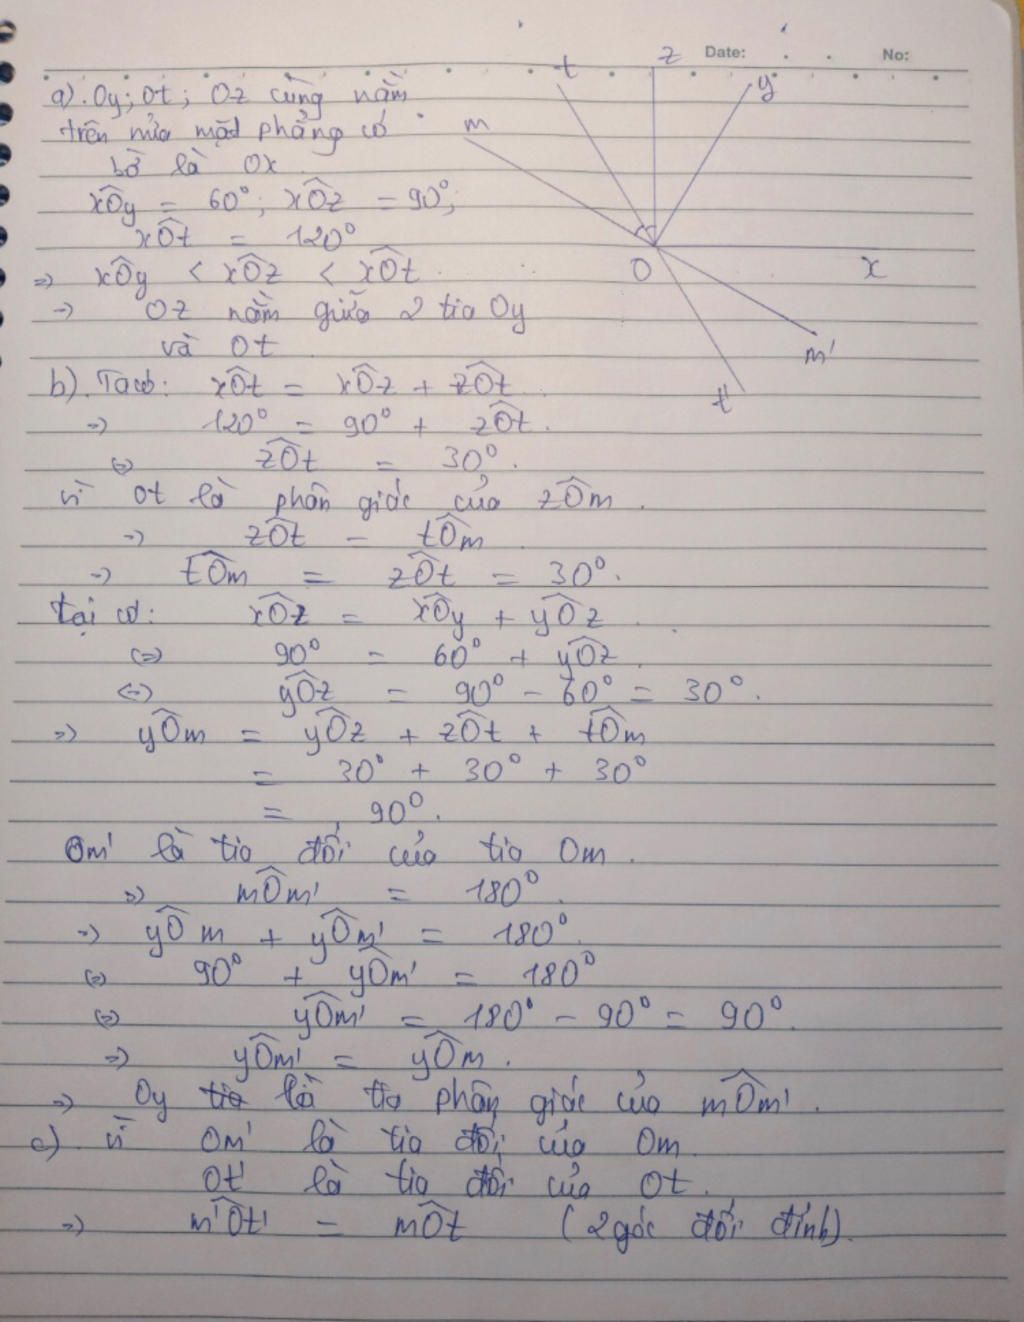 Date: No:
a). Oy; Ot; Oz cùng nằm
trên nửa mặt phẳng có
bờ là Ox
xÔy = 60°; xÔz = 90°;
xÔt = 120°
=> xÔy < xÔz < xÔt
-> Oz nằm giữa 2 tia Oy
và Ot
b). Ta có: xÔt = xÔz + zÔt
=> 120° = 90° + zÔt.
<=> zÔt = 30°.
vì Ot là phân giác của zÔm.
=> zÔt = tÔm
=> tÔm = zÔt = 30°.
tại có: xÔz = xÔy + yÔz
<=> 90° = 60° + yÔz.
<=> yÔz = 90° - 60° = 30°.
=> yÔm = yÔz + zÔt + tÔm
= 30° + 30° + 30°
= 90°.
Om' là tia đối của tia Om.
=> mÔm' = 180°.
=> yÔm + yÔm' = 180°.
<=> 90° + yÔm' = 180°
<=> yÔm' = 180° - 90° = 90°.
=> yÔm' = yÔm.
=> Oy tia là tia phân giác của mÔm'.
c). vì Om' là tia đối của Om.
Ot' là tia đối của Ot.
=> m'Ôt' = mÔt (2 góc đối đỉnh).
t z y
m
O x
m'
t'